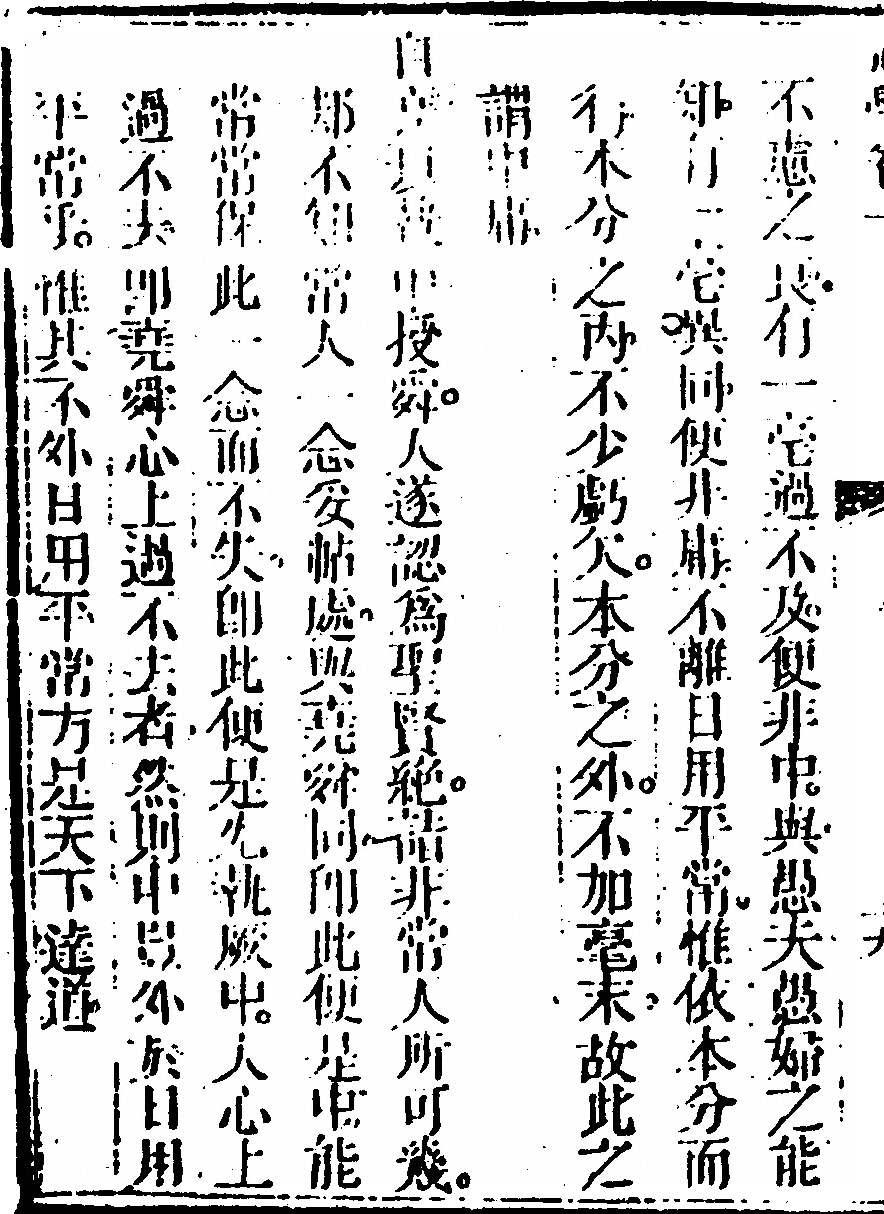 不慮之良行一毫過不及便非中與愚夫愚婦之能
知行一毫異同便非庸不離日用平常惟依本分而
行本分之內不少虧欠本分之外不加毫末故此之
謂中庸
自堯以執中授舜人遂認爲聖賢絶詣非常人所可幾
却不知常人一念妥帖處與堯舜同即此便是中能
常常保此一念而不失即此便是允執厥中人心上
過不去即堯舜心上過不去者然則中豈外於日用
平常乎惟其不外日用平常方是天下達道